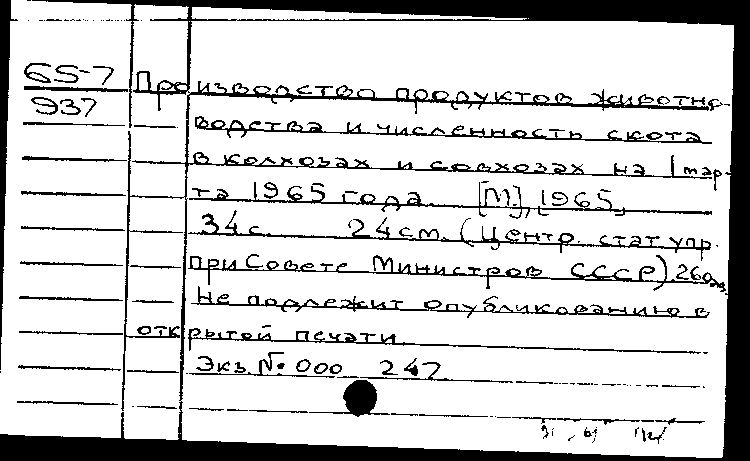 65-7
937
Производство продуктов животно-
водства и численность скота
в колхозах и совхозах на 1 мар-
та 1965 года. [М], 1965,
34 с. 24 см. (Центр. стат. упр.
при Совете Министров СССР). 260 экз.
Не подлежит опубликованию в
открытой печати.
Экз. № 000 247